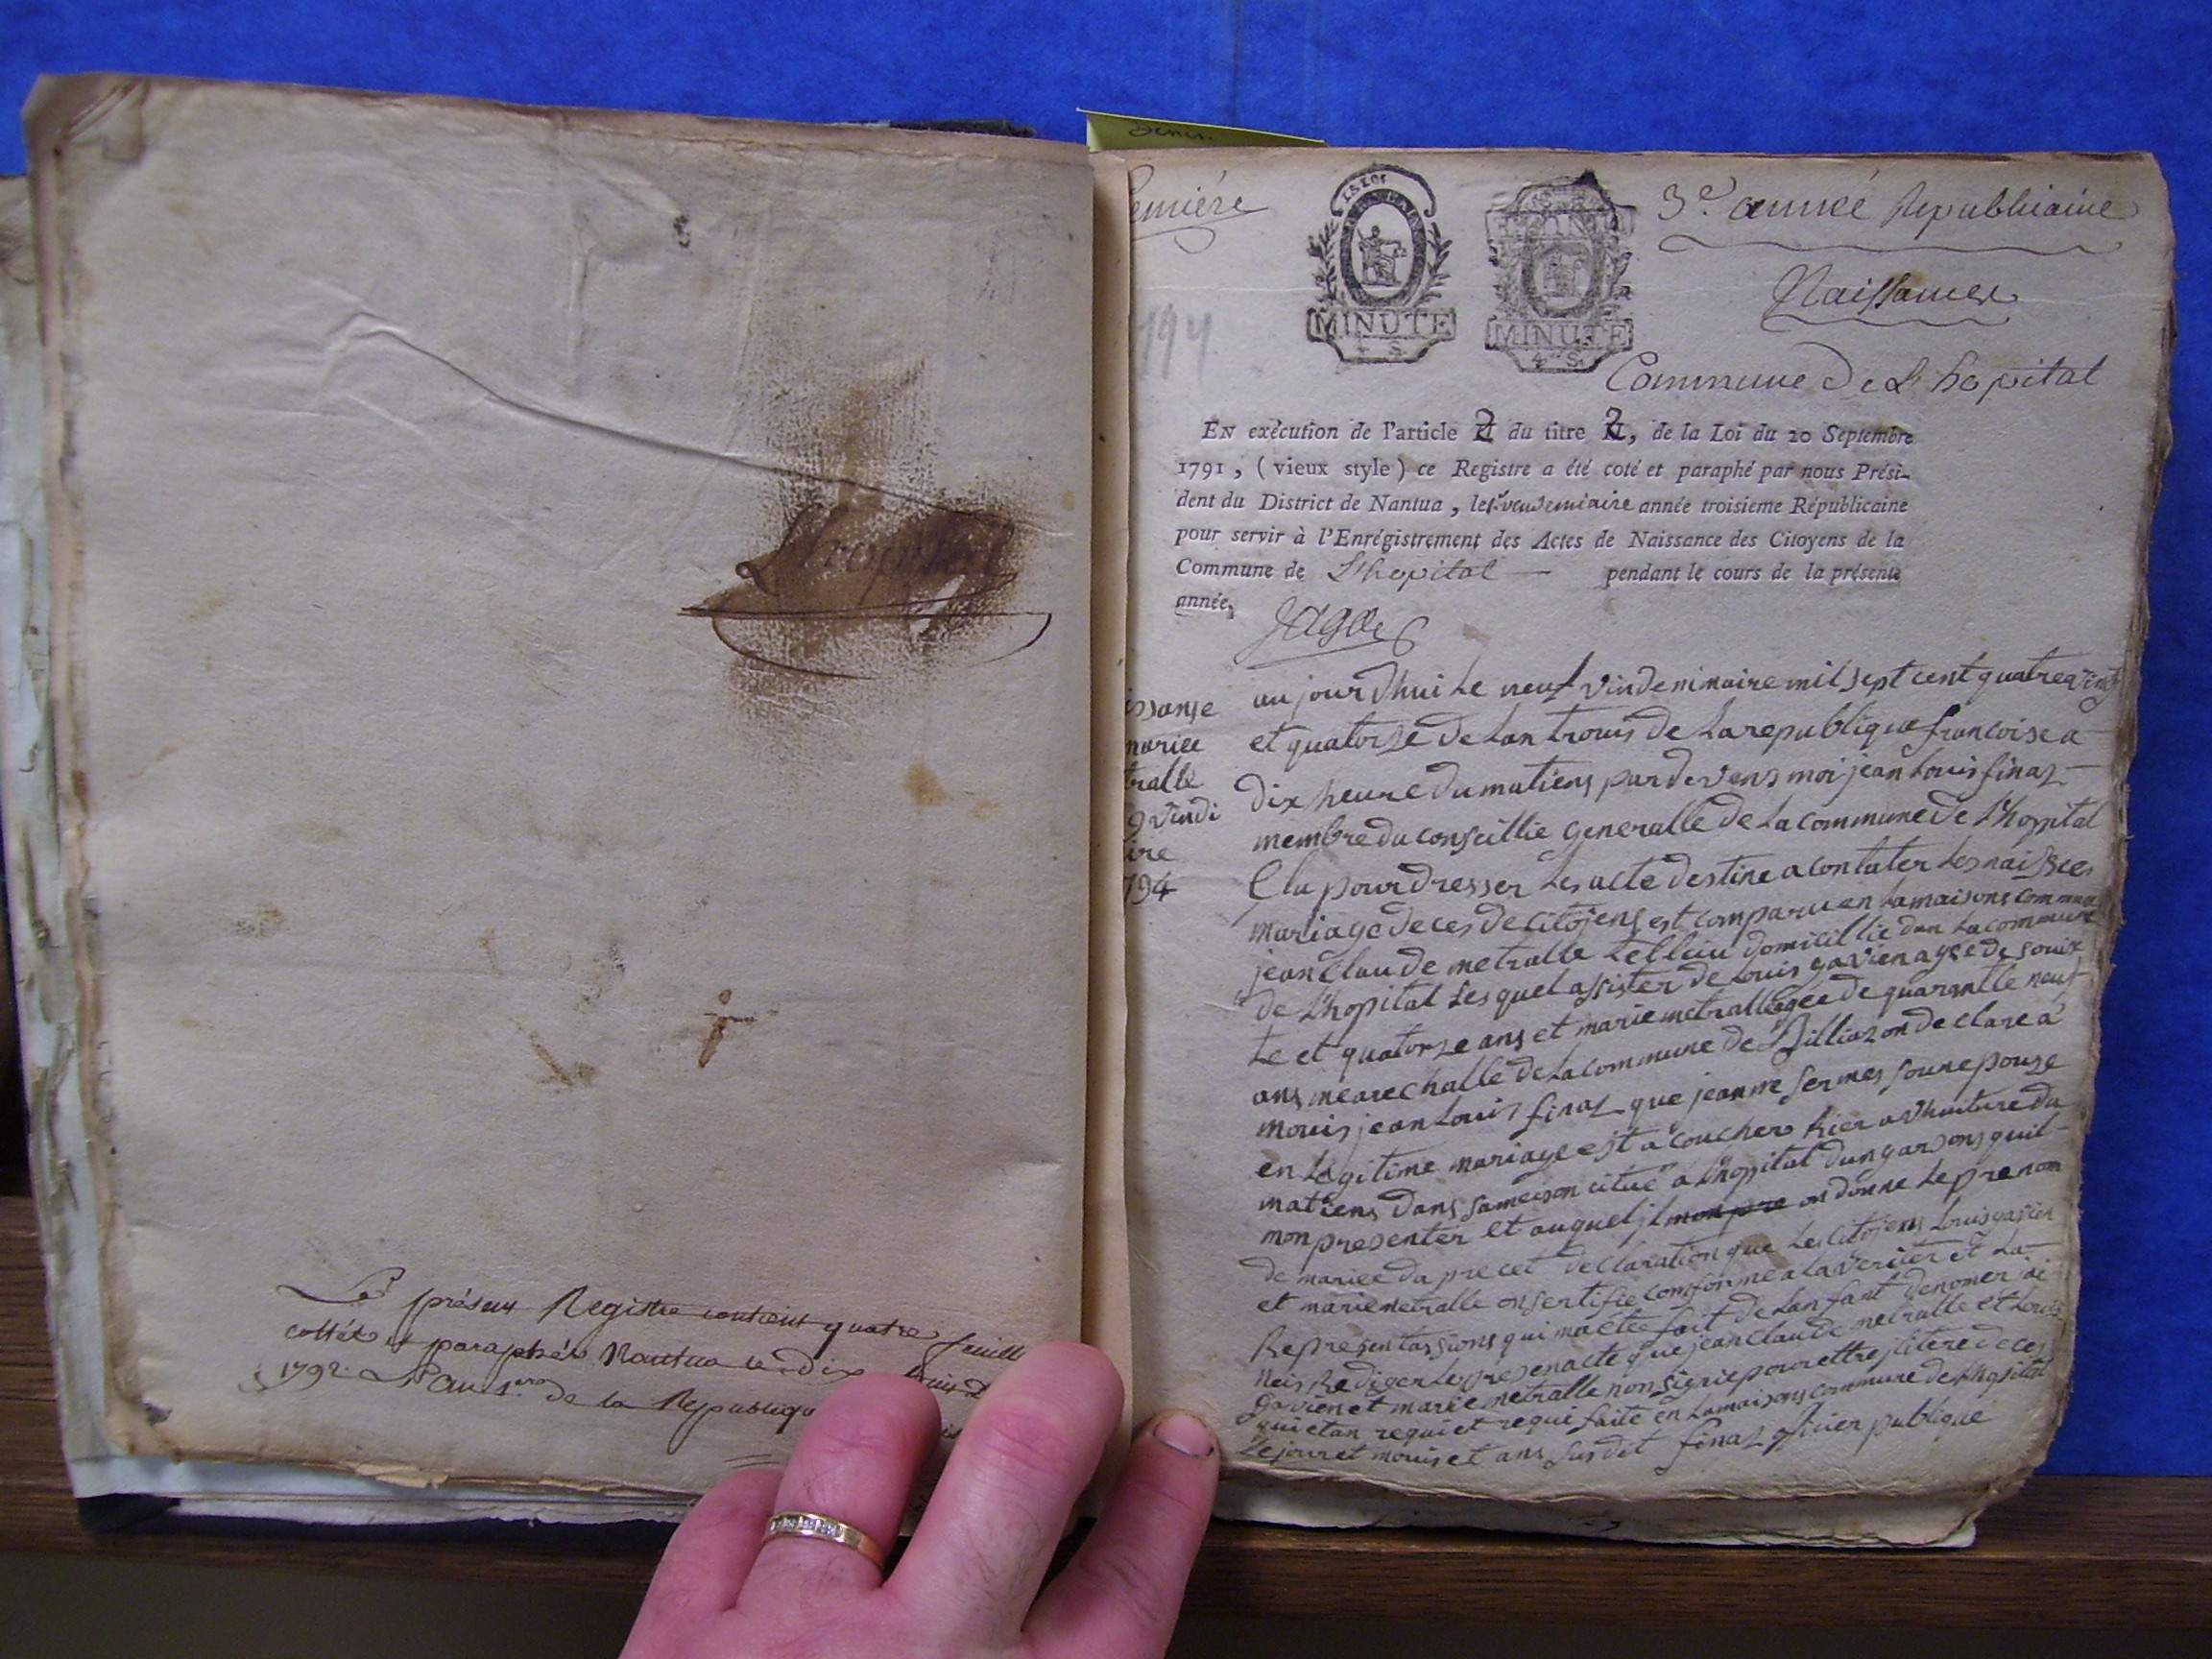 Lhopital
Le présent Registre contient quatre feuille
cottés et paraphés Nantua le dix
1792 L'an 1.er de la Republique
emiére
3.e année Republicaine
Naissances
LA LOI
MINUTE
4 S.
MINUTE
4 S.
194
Commune De L'hopital
EN exécution de l'article 2 du titre 2, de la Loi du 20 Septembre
1791, (vieux style) ce Registre a été coté et paraphé par nous Prési-
dent du District de Nantua, le 1.er vendemiaire année troisieme Républicaine
pour servir à l'Enrégistrement des Actes de Naissance des Citoyens de la
Commune de L'hopital pendant le cours de la présente
année.
issanse
mariee
tralle
9 vindi
ire
794
aujourdhui Le neuf vindemimaire mil sept cent quatrevingt
et quatorze de Lan trouis de La republique francoise a
dix heure du matiens pardevens moi jean Louis finaz
membre du conseillie generalle de La commune de L'hopital
Elu pour dresser Les acte destine a contater Les naissces
mariage deces de citojens est comparu en La maisons commune
jean Claude metralle domicillie dan La commune
de L'hopital Lesquel assister de Louis gavien agee de souix
te et quatorze ans et marie metralle agee de quarantte neuf
ans mearechalle de La commune de Billiaz on declare a
mouis jean Louis finaz que jeanne sermes soun epouse
en Legitime mariage est acoucher hier a Lhuiture du
matiens dans sa meison citue a L'hopital dun garsons quil
mon presenter et auquel jl mon pre on donne Le prenom
de mariee da pre cet declaration que Les citojens Louis gavien
et marie metralle on sertifie comforme a La veriter et La
Representassions qui ma etee fait de Lanfant denomer jai
Redigee Le presen acte que jean Claude metralle et Louis
gavien et marie metralle non signie pour ettre jlitere de ce
qui etan requi et requi faite en La maisons commune de L'hopital
Le jour et mouis et ans susdit finaz oficier publique